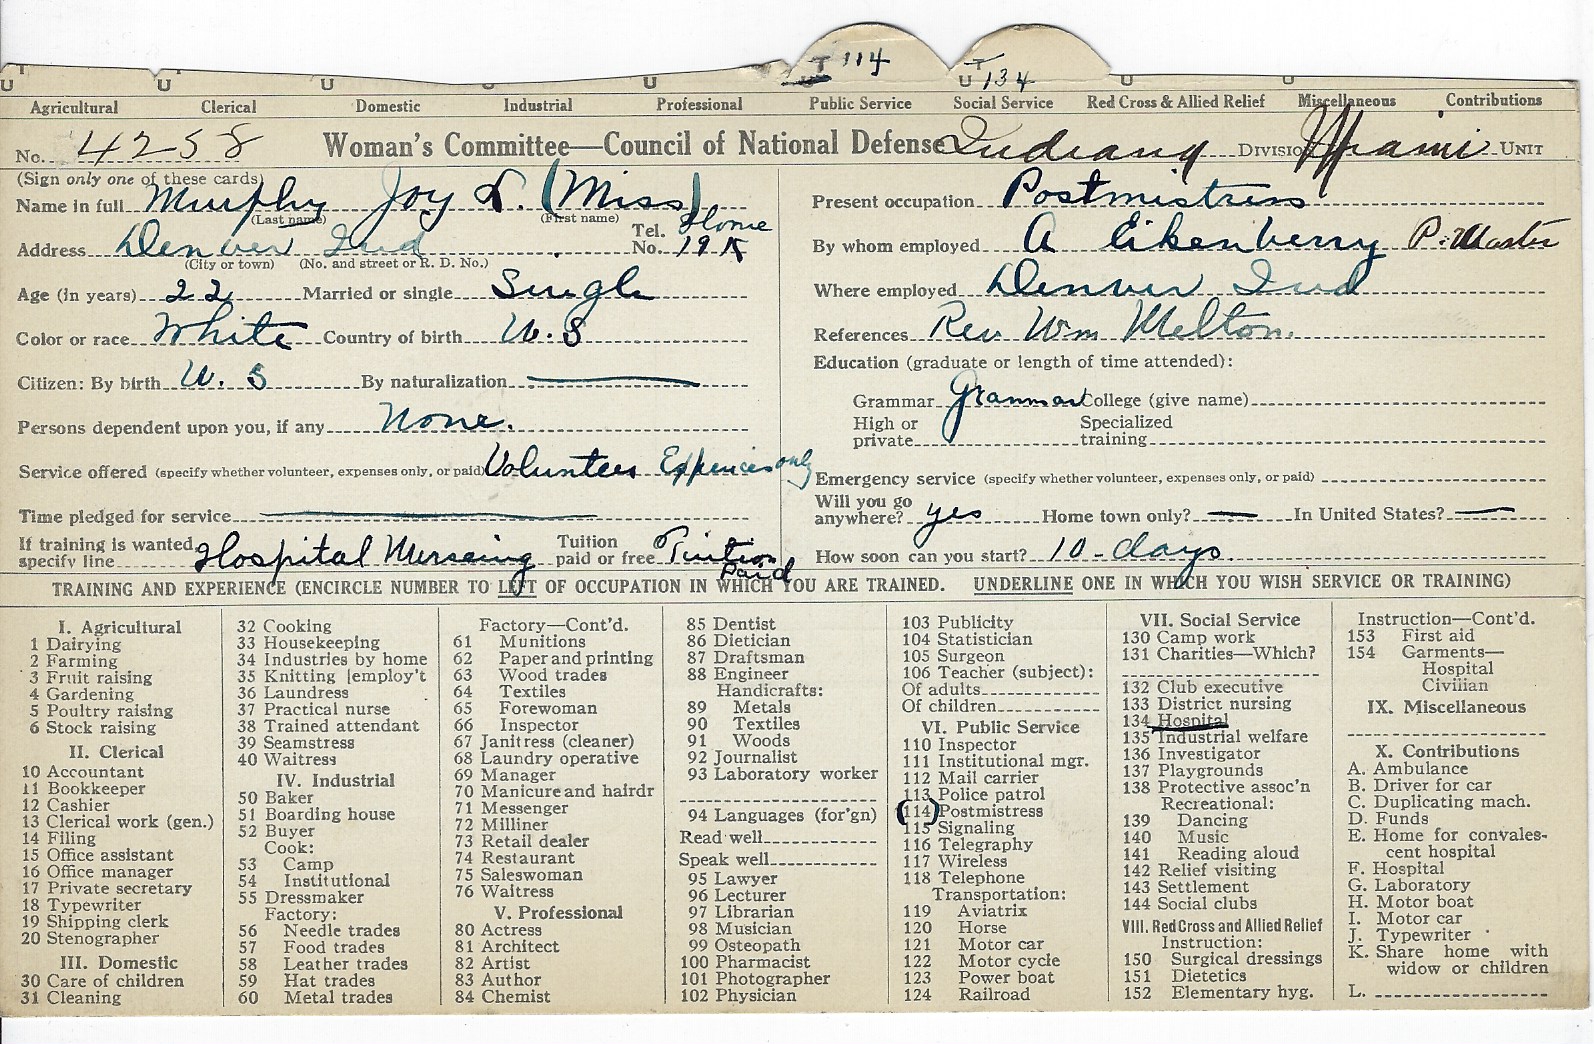 T 114 T 134
U U U U U U U U
Agricultural Clerical Domestic Industrial Professional Public Service Social Service Red Cross & Allied Relief Miscellaneous Contributions
No. 4258 Woman's Committee—Council of National Defense Indiana DIVISION Miami UNIT
(Sign only one of these cards)
Name in full Murphy Joy L. (Miss)
(Last name) (First name)
Address Denver Ind Tel. No. Home 19 K
(City or town) (No. and street or R. D. No.)
Age (in years) 22 Married or single Single
Color or race White Country of birth U. S
Citizen: By birth U. S By naturalization
Persons dependent upon you, if any None.
Service offered (specify whether volunteer, expenses only, or paid) Volunteer Expenses only
Time pledged for service
If training is wanted specify line Hospital Nurseing Tuition paid or free Tuition Paid
Present occupation Postmistress
By whom employed A Eikenberry P. Master
Where employed Denver Ind
References Rev Wm Melton.
Education (graduate or length of time attended):
Grammar Grammar College (give name)
High or private Specialized training
Emergency service (specify whether volunteer, expenses only, or paid)
Will you go anywhere? yes Home town only? In United States?
How soon can you start? 10-days
TRAINING AND EXPERIENCE (ENCIRCLE NUMBER TO LEFT OF OCCUPATION IN WHICH YOU ARE TRAINED. UNDERLINE ONE IN WHICH YOU WISH SERVICE OR TRAINING)
I. Agricultural
1 Dairying
2 Farming
3 Fruit raising
4 Gardening
5 Poultry raising
6 Stock raising
II. Clerical
10 Accountant
11 Bookkeeper
12 Cashier
13 Clerical work (gen.)
14 Filing
15 Office assistant
16 Office manager
17 Private secretary
18 Typewriter
19 Shipping clerk
20 Stenographer
III. Domestic
30 Care of children
31 Cleaning
32 Cooking
33 Housekeeping
34 Industries by home
35 Knitting [employ't
36 Laundress
37 Practical nurse
38 Trained attendant
39 Seamstress
40 Waitress
IV. Industrial
50 Baker
51 Boarding house
52 Buyer
Cook:
53 Camp
54 Institutional
55 Dressmaker
Factory:
56 Needle trades
57 Food trades
58 Leather trades
59 Hat trades
60 Metal trades
Factory—Cont'd.
61 Munitions
62 Paper and printing
63 Wood trades
64 Textiles
65 Forewoman
66 Inspector
67 Janitress (cleaner)
68 Laundry operative
69 Manager
70 Manicure and hairdr
71 Messenger
72 Milliner
73 Retail dealer
74 Restaurant
75 Saleswoman
76 Waitress
V. Professional
80 Actress
81 Architect
82 Artist
83 Author
84 Chemist
85 Dentist
86 Dietician
87 Draftsman
88 Engineer
Handicrafts:
89 Metals
90 Textiles
91 Woods
92 Journalist
93 Laboratory worker
94 Languages (for'gn)
Read well
Speak well
95 Lawyer
96 Lecturer
97 Librarian
98 Musician
99 Osteopath
100 Pharmacist
101 Photographer
102 Physician
103 Publicity
104 Statistician
105 Surgeon
106 Teacher (subject):
Of adults
Of children
VI. Public Service
110 Inspector
111 Institutional mgr.
112 Mail carrier
113 Police patrol
(114) Postmistress
115 Signaling
116 Telegraphy
117 Wireless
118 Telephone
Transportation:
119 Aviatrix
120 Horse
121 Motor car
122 Motor cycle
123 Power boat
124 Railroad
VII. Social Service
130 Camp work
131 Charities—Which?
132 Club executive
133 District nursing
134 Hospital
135 Industrial welfare
136 Investigator
137 Playgrounds
138 Protective assoc'n
Recreational:
139 Dancing
140 Music
141 Reading aloud
142 Relief visiting
143 Settlement
144 Social clubs
VIII. Red Cross and Allied Relief
Instruction:
150 Surgical dressings
151 Dietetics
152 Elementary hyg.
Instruction—Cont'd.
153 First aid
154 Garments—
Hospital
Civilian
IX. Miscellaneous
X. Contributions
A. Ambulance
B. Driver for car
C. Duplicating mach.
D. Funds
E. Home for convales-
cent hospital
F. Hospital
G. Laboratory
H. Motor boat
I. Motor car
J. Typewriter
K. Share home with
widow or children
L.